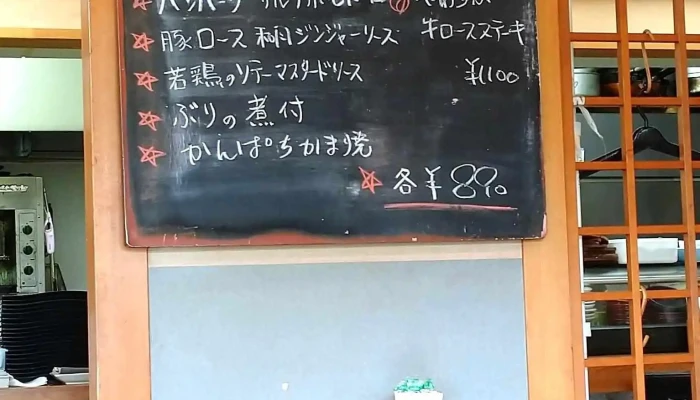 豚ロース 和風ジンジャーソース 牛ロースステーキ
若鶏のソテーマスタードソース ¥1100
ぶりの煮付
かんぱちかま焼
各¥890